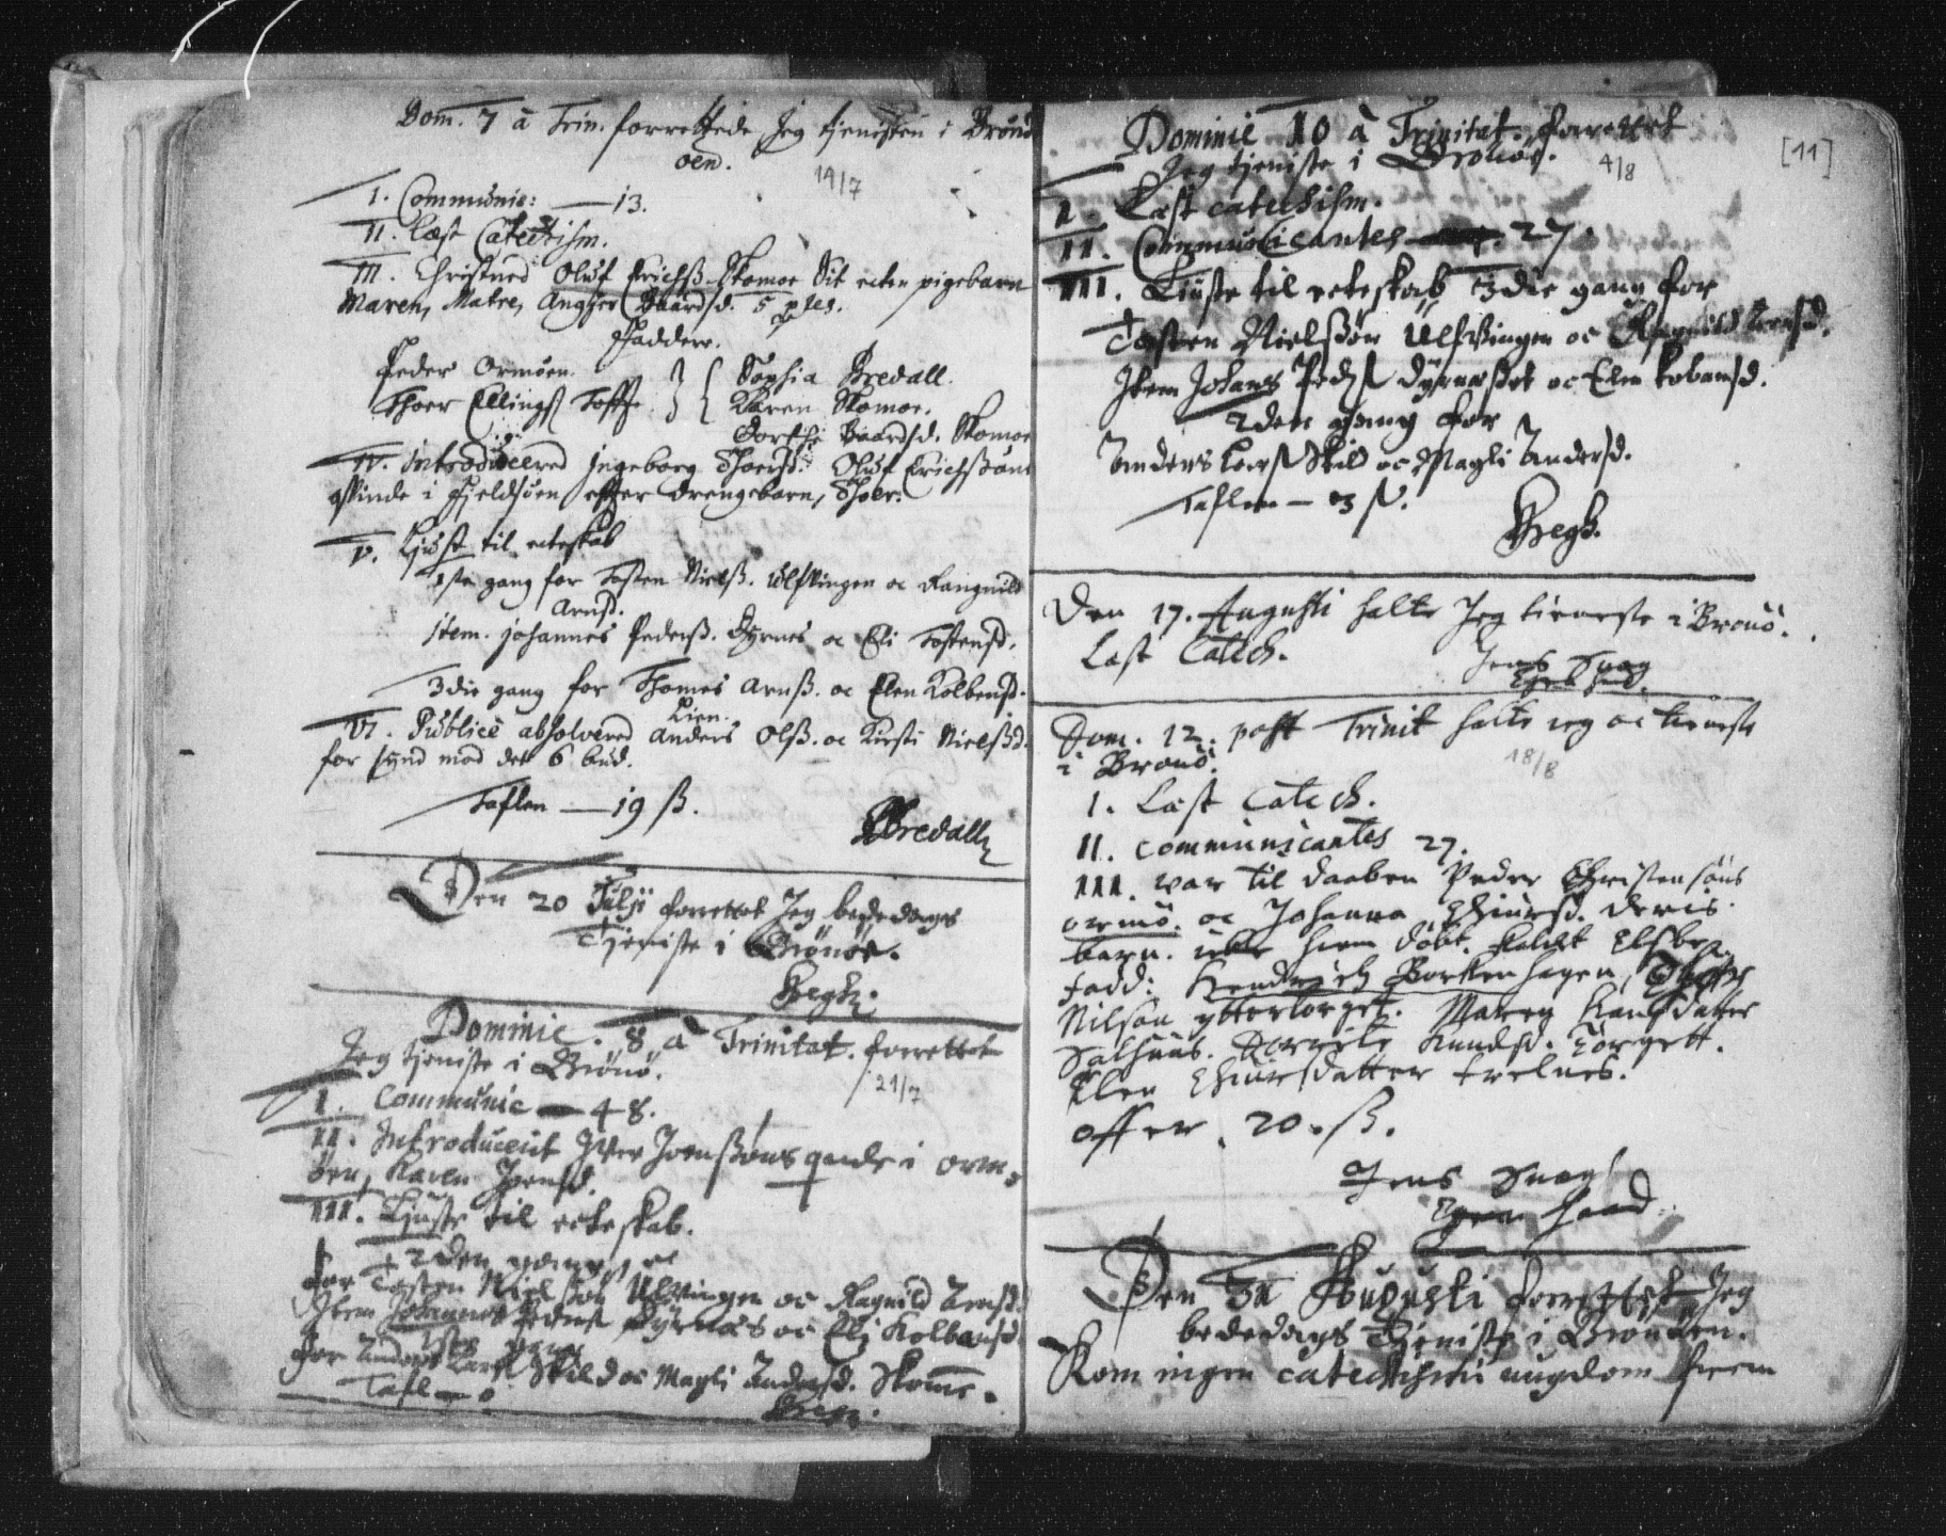 Dom. 7 à Trin. forrettede Jeg tjenisten i Brönö
oen.
14/7
I. Communic: — 13.
II. Læst Catechism.
III. Christned Oluf Erichsß. Skomoe Sit ecten pigebarn
Maren, Matre, Baardsd. 5
Faddere.
Peder Ormöen. Sophia Bredall.
Thoer Ellings Toffte Karen Skomoe.
Dorthe Baardsd. Skomoe
IV. Introducered Jngeborg Thoersd. Oluf Erichßöns
qvinde i Fjeldsöen effter drengebarn, Thoer.
V. Liust til ecteskab
1ste gang for Tosten Nielsß. Ulfvingen oc Rangnild
Arnsd.
item. johannes Pederß. Dyrnes oc Eli Tostensd.
3die gang for Thomes Arnß. oc Elen Kolbensd.
Lien.
VI. Publicè absolvered Anders Olß. oc Kirsti Nielsßd.
for synd mod det 6 bud.
Taflen — 19 ß.
Bredall
Den 20 Julji forrettet Jeg bededags
Tjeniste i Brönöe.
Dominic. 8 à Trinitat. forrettet
Jeg tjeniste i Brönö.
21/7
I. Communic — 48.
II. Introducerit Jver Joenßöns qvinde i Orm-
öen, Karen Joensd.
III. Liuste til ecteskab.
2den gang
for Tosten Nielßön Ulvingen oc Ragnild Arnsd.
Jtem Johannes Peders Dyrnæs oc Eli Kolbensd.
1ste gang
for Anders Lars Skild oc Magli Andersd. Skomoe.
Tafl — 0
[11]
Dominic 10 à Trinitat. forrettet
Jeg tjeniste i Brönöe.
4/8
I. Læst catechism.
II. Communicantes 27.
III. Liuste til ecteskab 3die gang for
Tosten Nielßön Ulfvingen oc Ragnild Arnsd.
Jtem Johans Peders Dyrnæset oc Elen Kobansd.
2den gang for
Anders Lars Skild oc Magli Andersd.
Taflen — 3 ß.
Den 17. Augusti holte Jeg tieneste i Brönö.
Læst Catech.
Jens Snog
Dom. 12. post Trinit holte jeg oc tieneste
i Brönö.
18/8
I. Læst Catech.
II. communicantes 27.
III. war til daaben Peder Christensöns
ormö. oc Johanna deris
barn. hiem döbt. kaldet Elsbe
fadd: Hendrich Borkenhagen,
Nilsön yttertorget. Maren Hansdatter
Salhuus. Dorrete Knudsd. Torgett.
Elen
offer. 20. ß.
Jens Snog
Egen Haand.
Den Augusti forrettet Jeg
bededags Tjeniste i Brönöen.
Kom ingen catechismi ungdom frem